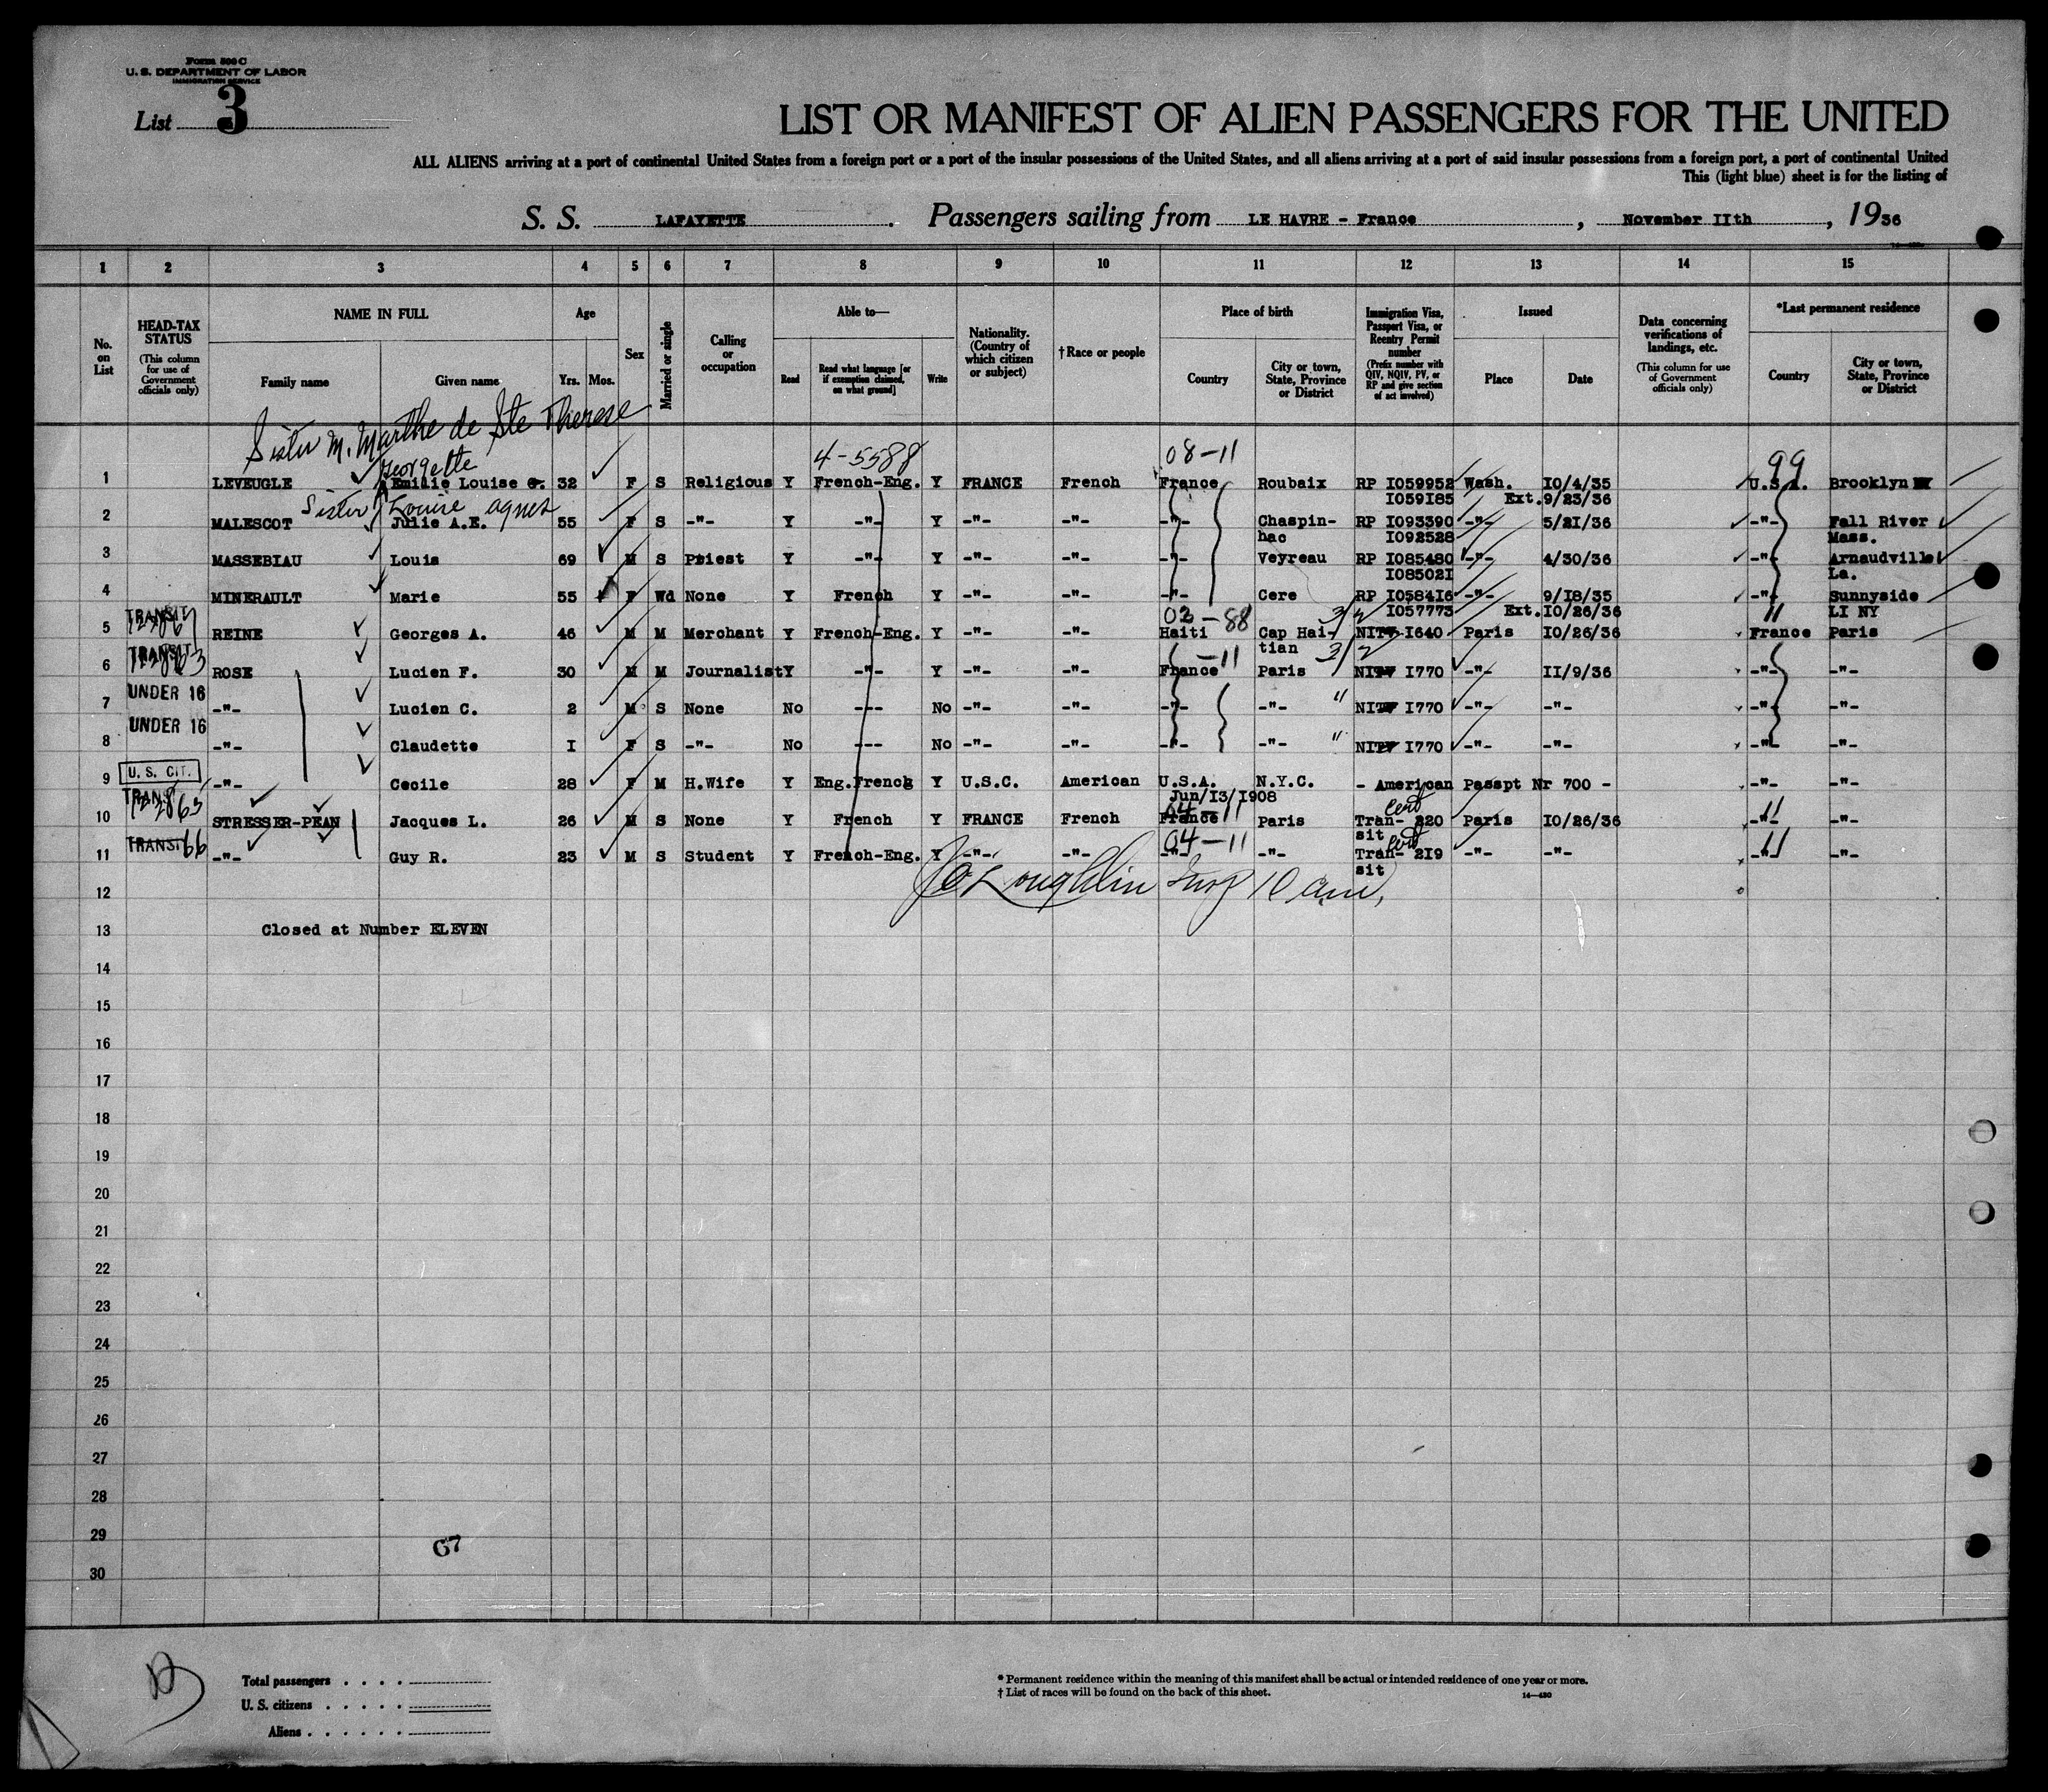 Form 500 C
U. S. DEPARTMENT OF LABOR
IMMIGRATION SERVICE
List 3
LIST OR MANIFEST OF ALIEN PASSENGERS FOR THE UNITED
ALL ALIENS arriving at a port of continental United States from a foreign port or a port of the insular possessions of the United States, and all aliens arriving at a port of said insular possessions from a foreign port, a port of continental United
This (light blue) sheet is for the listing of
S. S. LAFAYETTE. Passengers sailing from LE HAVRE - France, November IIth, 1936
1 2 3 4 5 6 7 8 9 10 11 12 13 14 15
No. on List
HEAD-TAX STATUS
(This column for use of Government officials only)
NAME IN FULL
Family name Given name
Age
Yrs. Mos.
Sex
Married or single
Calling or occupation
Able to—
Read
Read what language [or if exemption claimed, on what ground]
Write
Nationality. (Country of which citizen or subject)
†Race or people
Place of birth
Country
City or town, State, Province or District
Immigration Visa, Passport Visa, or Reentry Permit number
(Prefix number with QIV, NQIV, PV, or RP and give section of act involved)
Issued
Place Date
Data concerning verifications of landings, etc.
(This column for use of Government officials only)
*Last permanent residence
Country
City or town, State, Province or District
Sister M. Marthe de Ste Therese
Georgette 4-5588 08-11 99
1 LEVEUGLE Emilie Louise G. 32 F S Religious Y French-Eng. Y FRANCE French France Roubaix RP I059952 Wash. I0/4/35 U.S.A. Brooklyn NY
Sister Louise Agnes I059I85 Ext. 9/23/36
2 MALESCOT Julie A.E. 55 F S -"- Y -"- Y -"- -"- -"- Chaspin- RP I093390 -"- 5/2I/36 -"- Fall River
hac I092528 Mass.
3 MASSEBIAU Louis 69 M S Priest Y -"- Y -"- -"- -"- Veyreau RP I085480 -"- 4/30/36 -"- Arnaudville
I08502I La.
4 MINERAULT Marie 55 F Wd None Y French Y -"- -"- -"- Cere RP I0584I6 -"- 9/I8/35 -"- Sunnyside
TRANSIT 02-88 3/2 I057773 Ext. I0/26/36 " LI NY
5 REINE Georges A. 46 M M Merchant Y French-Eng. Y -"- -"- Haiti Cap Hai- I640 Paris I0/26/36 France Paris
TRANSIT -11 tian 3/2
6 ROSE Lucien F. 30 M M Journalist Y -"- Y -"- -"- France Paris I770 -"- II/9/36 -"- -"-
UNDER 16
7 -"- Lucien C. 2 M S None No --- No -"- -"- -"- -"- " I770 -"- -"- -"- -"-
UNDER 16
8 -"- Claudette I F S -"- No --- No -"- -"- -"- -"- " I770 -"- -"- -"- -"-
U. S. CIT.
9 -"- Cecile 28 F M H.Wife Y Eng.French Y U.S.C. American U.S.A. N.Y.C. - American Passpt Nr 700 - -"- -"-
Jun/I3/I908
TRANSIT 04-11 Cert
10 STRESSER-PEAN Jacques L. 26 M S None Y French Y FRANCE French France Paris Tran- 220 Paris I0/26/36 -"- -"-
TRANSIT 66 04-11 sit Cert
11 -"- Guy R. 23 M S Student Y French-Eng. Y -"- -"- -"- -"- Tran- 2I9 -"- -"- -"- -"-
sit
12 O'Loughlin Insp 10 am,
13 Closed at Number ELEVEN
14
15
16
17
18
19
20
21
22
23
24
25
26
27
28
29
67
30
Total passengers
U. S. citizens
Aliens
* Permanent residence within the meaning of this manifest shall be actual or intended residence of one year or more.
† List of races will be found on the back of this sheet.
14—430